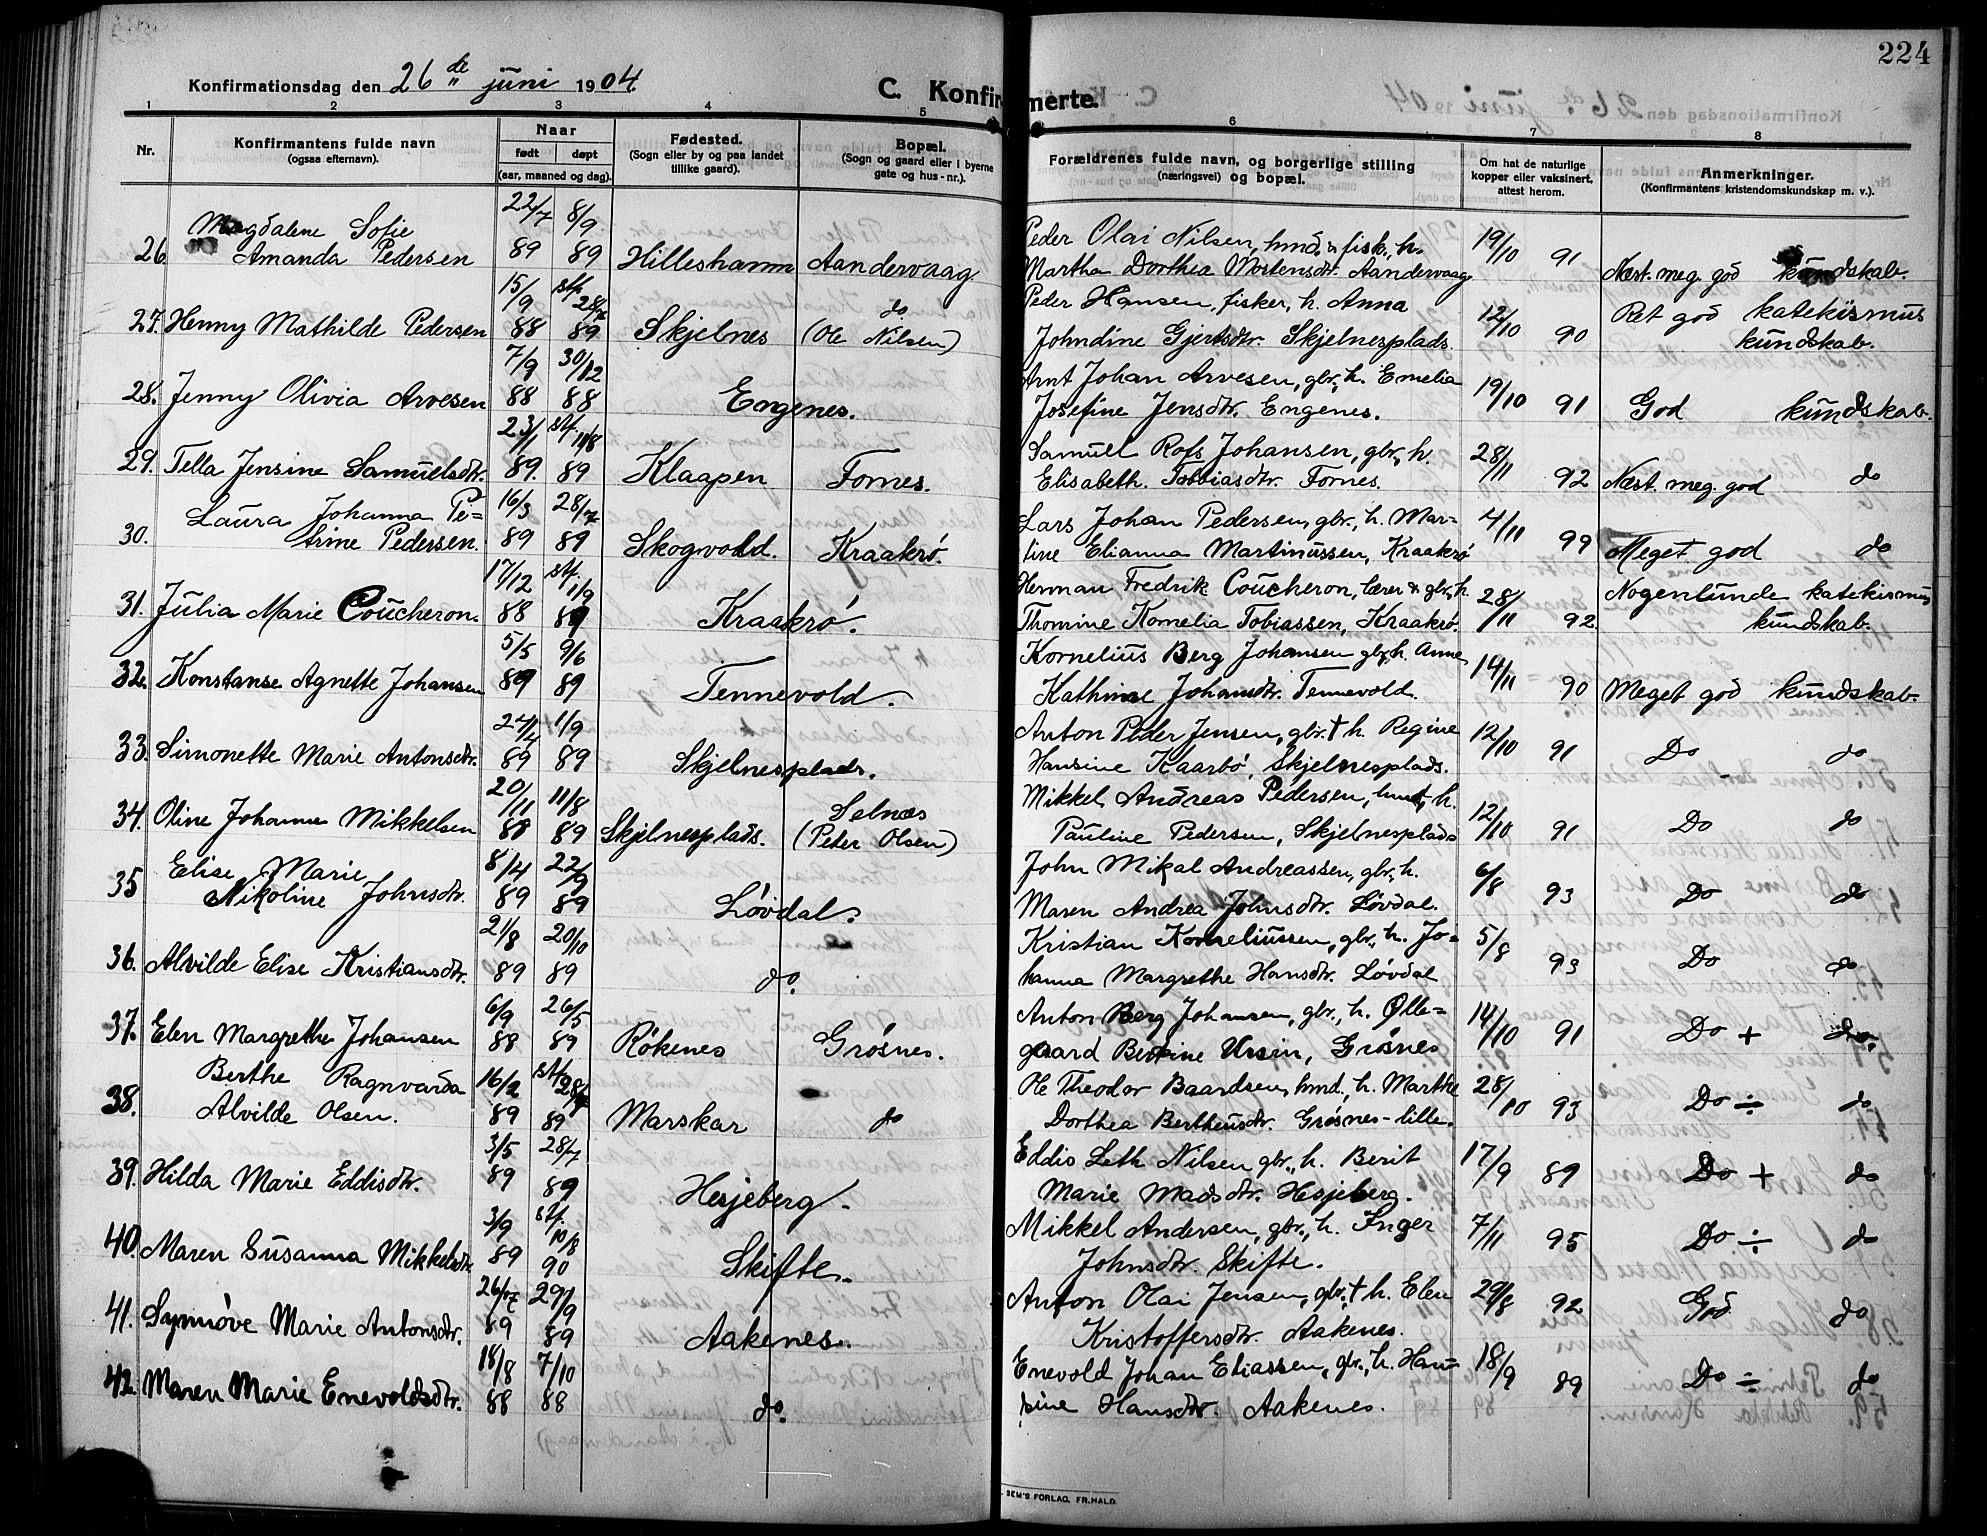 224
Konfirmationsdag den 26de juni 1904.
C. Konfirmerte.
1 2 3 4 5 6 7 8
Nr.
Konfirmantens fulde navn
(ogsaa efternavn).
Naar
født døpt
(aar, maaned og dag).
Fødested.
(Sogn eller by og paa landet
tillike gaard).
Bopæl.
(Sogn og gaard eller i byerne
gate og hus-nr.).
Forældrenes fulde navn, og borgerlige stilling
(næringsvei) og bopæl.
Om hat de naturlige
kopper eller vaksinert,
attest herom.
Anmerkninger.
(Konfirmantens kristendomskundskap m. v.).
Magdalene Sofie 22/7 8/9 Peder Olai Nilsen, hmd. & fisk., h. 19/10
26 Amanda Pedersen 89 89 Hilleshamn Aandervaag Martha Dorthea Mortensdtr. Aandervaag 91 Næst. meg. god kundskab.
15/9 stf. 28/4 do. Peder Hansen, fisker, h. Anna 12/10 Ret god katekismus
27. Henny Mathilde Pedersen 88 89 Skjelnes (Ole Nilsen) Johndine Gjertsdtr. Skjelnesplads. 90 kundskab.
7/9 30/12 Arnt Johan Arvesen, gbr., h. Emelia 19/10
28. Jenny Olivia Arvesen 88 88 Engenes. Josefine Jensdtr. Engenes. 91 God kundskab.
23/1 stf. 11/8 Samuel Rofs Johansen, gbr., h. 28/11
29. Tella Jensine Samuelsdtr. 89. 89 Klaapen Fornes. Elisabeth. Tobbiasdtr. Fornes. 92 Næst. meg. god do
Laura Johanna Pe= 16/3 28/7 Lars Johan Pedersen, gbr., h. Mar= 4/11
30. trine Pedersen. 89 89 Skogvold. Kraakrø. tine Elianna Martinussen, Kraakrø 99 Meget god do
17/12 stf. 1/9 Herman Fredrik Coucheron, lærer & gbr., h. 28/11 Nogenlunde katekismus
31. Julia Marie Coucheron. 88 89 Kraakrø. Thomine Kornelia Tobiassen, Kraakrø. 92. kundskab.
5/5 9/6 Kornelius Berg Johansen gbr., h. Anne 14/11
32. Konstanse Agnette Johansen 89 89 Tennevold. Kathinae Johansdtr. Tennevold. 90 Meget god kundskab.
24/4 1/9 Anton Peder Jensen, gbr. † h. Regine 12/10
33. Simonette Marie Antonsdtr. 89 89 Skjelnesplads. Hansine Kaarbø, Skjelnesplads. 91 Do do
20/11 11/8 Selnæs Mikkel Andreas Pedersen, hmd, h. 12/10
34. Oline Johanne Mikkelsen 88 89 Skjelnesplads. (Peter Olsen) Pauline Pedersen, Skjelnesplads 91 Do do
Elise Marie 8/4 22/9 John Mikal Andreassen, gbr., h. 6/8
35 Nikoline Johnsdtr. 89 89 Løvdal. Maren Andrea Johnsdtr. Løvdal. 93 Do do
21/8 20/10 Kristian Korneliussen, gbr., h. Jo= 5/8
36. Alvilde Elise Kristiansdtr. 89 89 do. hanna Margrethe Hansdtr. Løvdal 93 Do do
6/9 26/5 Anton Berg Johansen, gbr., h. Ølle= 14/10
37. Elen Margrethe Johansen 88 89 Røkenes Grøsnes. gaard Bertine Ursin, Grøsnes 91 Do + do.
Berthe Ragnvarda 16/2 stf. 28/4 Ole Theodor Baardsen, hmd., h. Marthe 28/10
38. Alvilde Olsen. 89 89 Marskar do Dorthea Bertheusdtr. Grøsnes-lille. 93 Do ÷ do
3/5 28/7 Eddis Leth Nilsen gbr., h. Berit 17/9
39. Hilda Marie Eddisdtr. 89 89 Hesjeberg. Marie Madsdtr. Hesjeberg. 89 Do + do
3/9 stf. 10/8 Mikkel Andersen, gbr., h. Inger 7/11
40. Maren Susanna Mikkelsdtr. 89 90 Skifte. Johnsdtr. Skifte. 95 Do ÷ do
26/7 29/9 Anton Olai Jensen, gbr., † h. Elen 29/8
41. Synnøve Marie Antonsdtr. 89 89 Aakenes. Kristoffersdtr. Aakenes. 92 God do
18/8 7/10 Enevold Johan Eliassen, gbr., h. Han= 18/9
42. Maren Marie Enevoldsdtr. 88 88 do. sine Hansdtr. Aakenes. 89 Do ÷ do
SEM'S FORLAG, FR.HALD.